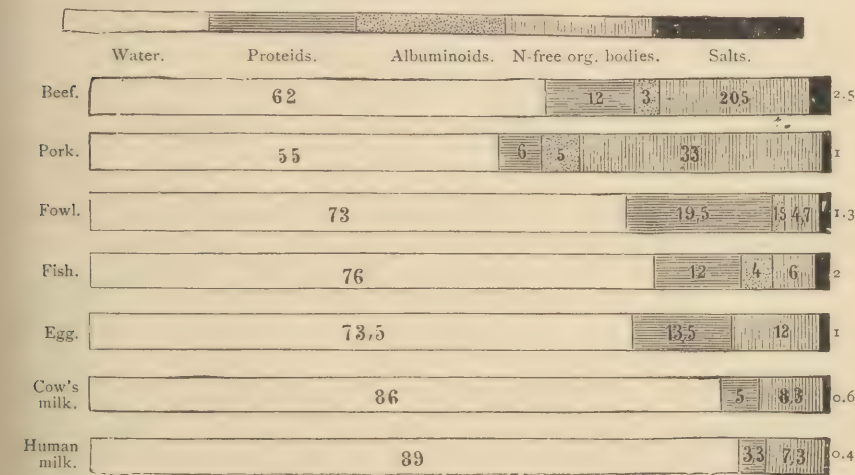 Water. Proteids. Albuminoids. N-free org. bodies. Salts.
Beef. 62 12 3 205 2.5
Pork. 55 6 5 33 1
Fowl. 73 19,5 1,5 4,7 1.3
Fish. 76 12 4 6 2
Egg. 73,5 13,5 12 1
Cow's
milk. 86 5 8,3 0.6
Human
milk. 89 3,3 7,3 0.4